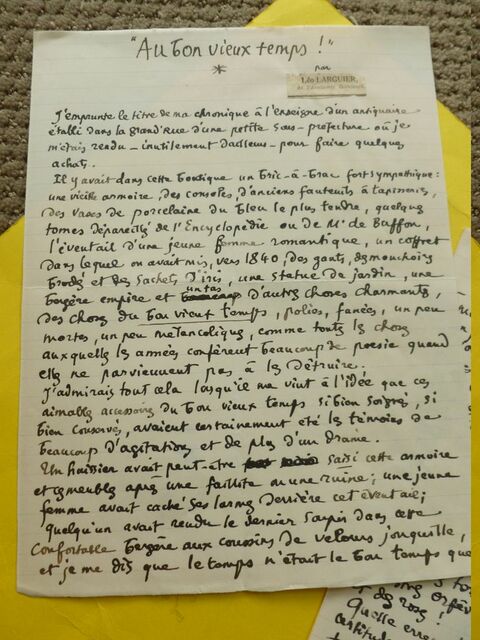 "Au bon vieux temps !"
*
par
Léo LARGUIER,
de l'Académie Goncourt
J'emprunte le titre de ma chronique à l'enseigne d'un antiquaire
établi dans la grand'rue d'une petite sous-préfecture où je
m'étais rendu - inutilement d'ailleurs - pour faire quelques
achats.
Il y avait dans cette boutique un bric-à-brac fort sympathique:
une vieille armoire, des consoles, d'anciens fauteuils à tapisseries,
des vases de porcelaine du bleu le plus tendre, quelques
tomes dépareillés de l'Encyclopédie ou de Mr de Buffon,
l'éventail d'une jeune femme romantique, un coffret
dans lequel on avait mis, vers 1840, des gants, des mouchoirs
brodés et des sachets d'iris, une statue de jardin, une
bergère empire et un tas d'autres choses charmantes,
des choses du bon vieux temps, polies, fanées, un peu
mortes, un peu mélancoliques, comme toutes les choses
auxquelles les années confèrent beaucoup de poésie quand
elles ne parviennent pas à les détruire.
J'admirais tout cela lorsqu'il me vint à l'idée que ces
aimables accessoires du bon vieux temps si bien soignés, si
bien conservés, avaient certainement été les témoins de
beaucoup d'agitations et de plus d'un drame.
Un huissier avait peut-être saisi cette armoire
et ces meubles après une faillite ou une ruine; une jeune
femme avait caché ses larmes derrière cet éventail;
quelqu'un avait rendu le dernier soupir dans cette
confortable bergère aux coussins de velours jonquille,
et je me dis que le temps n'était le bon temps que
des roses !
Quelle erre
certitude